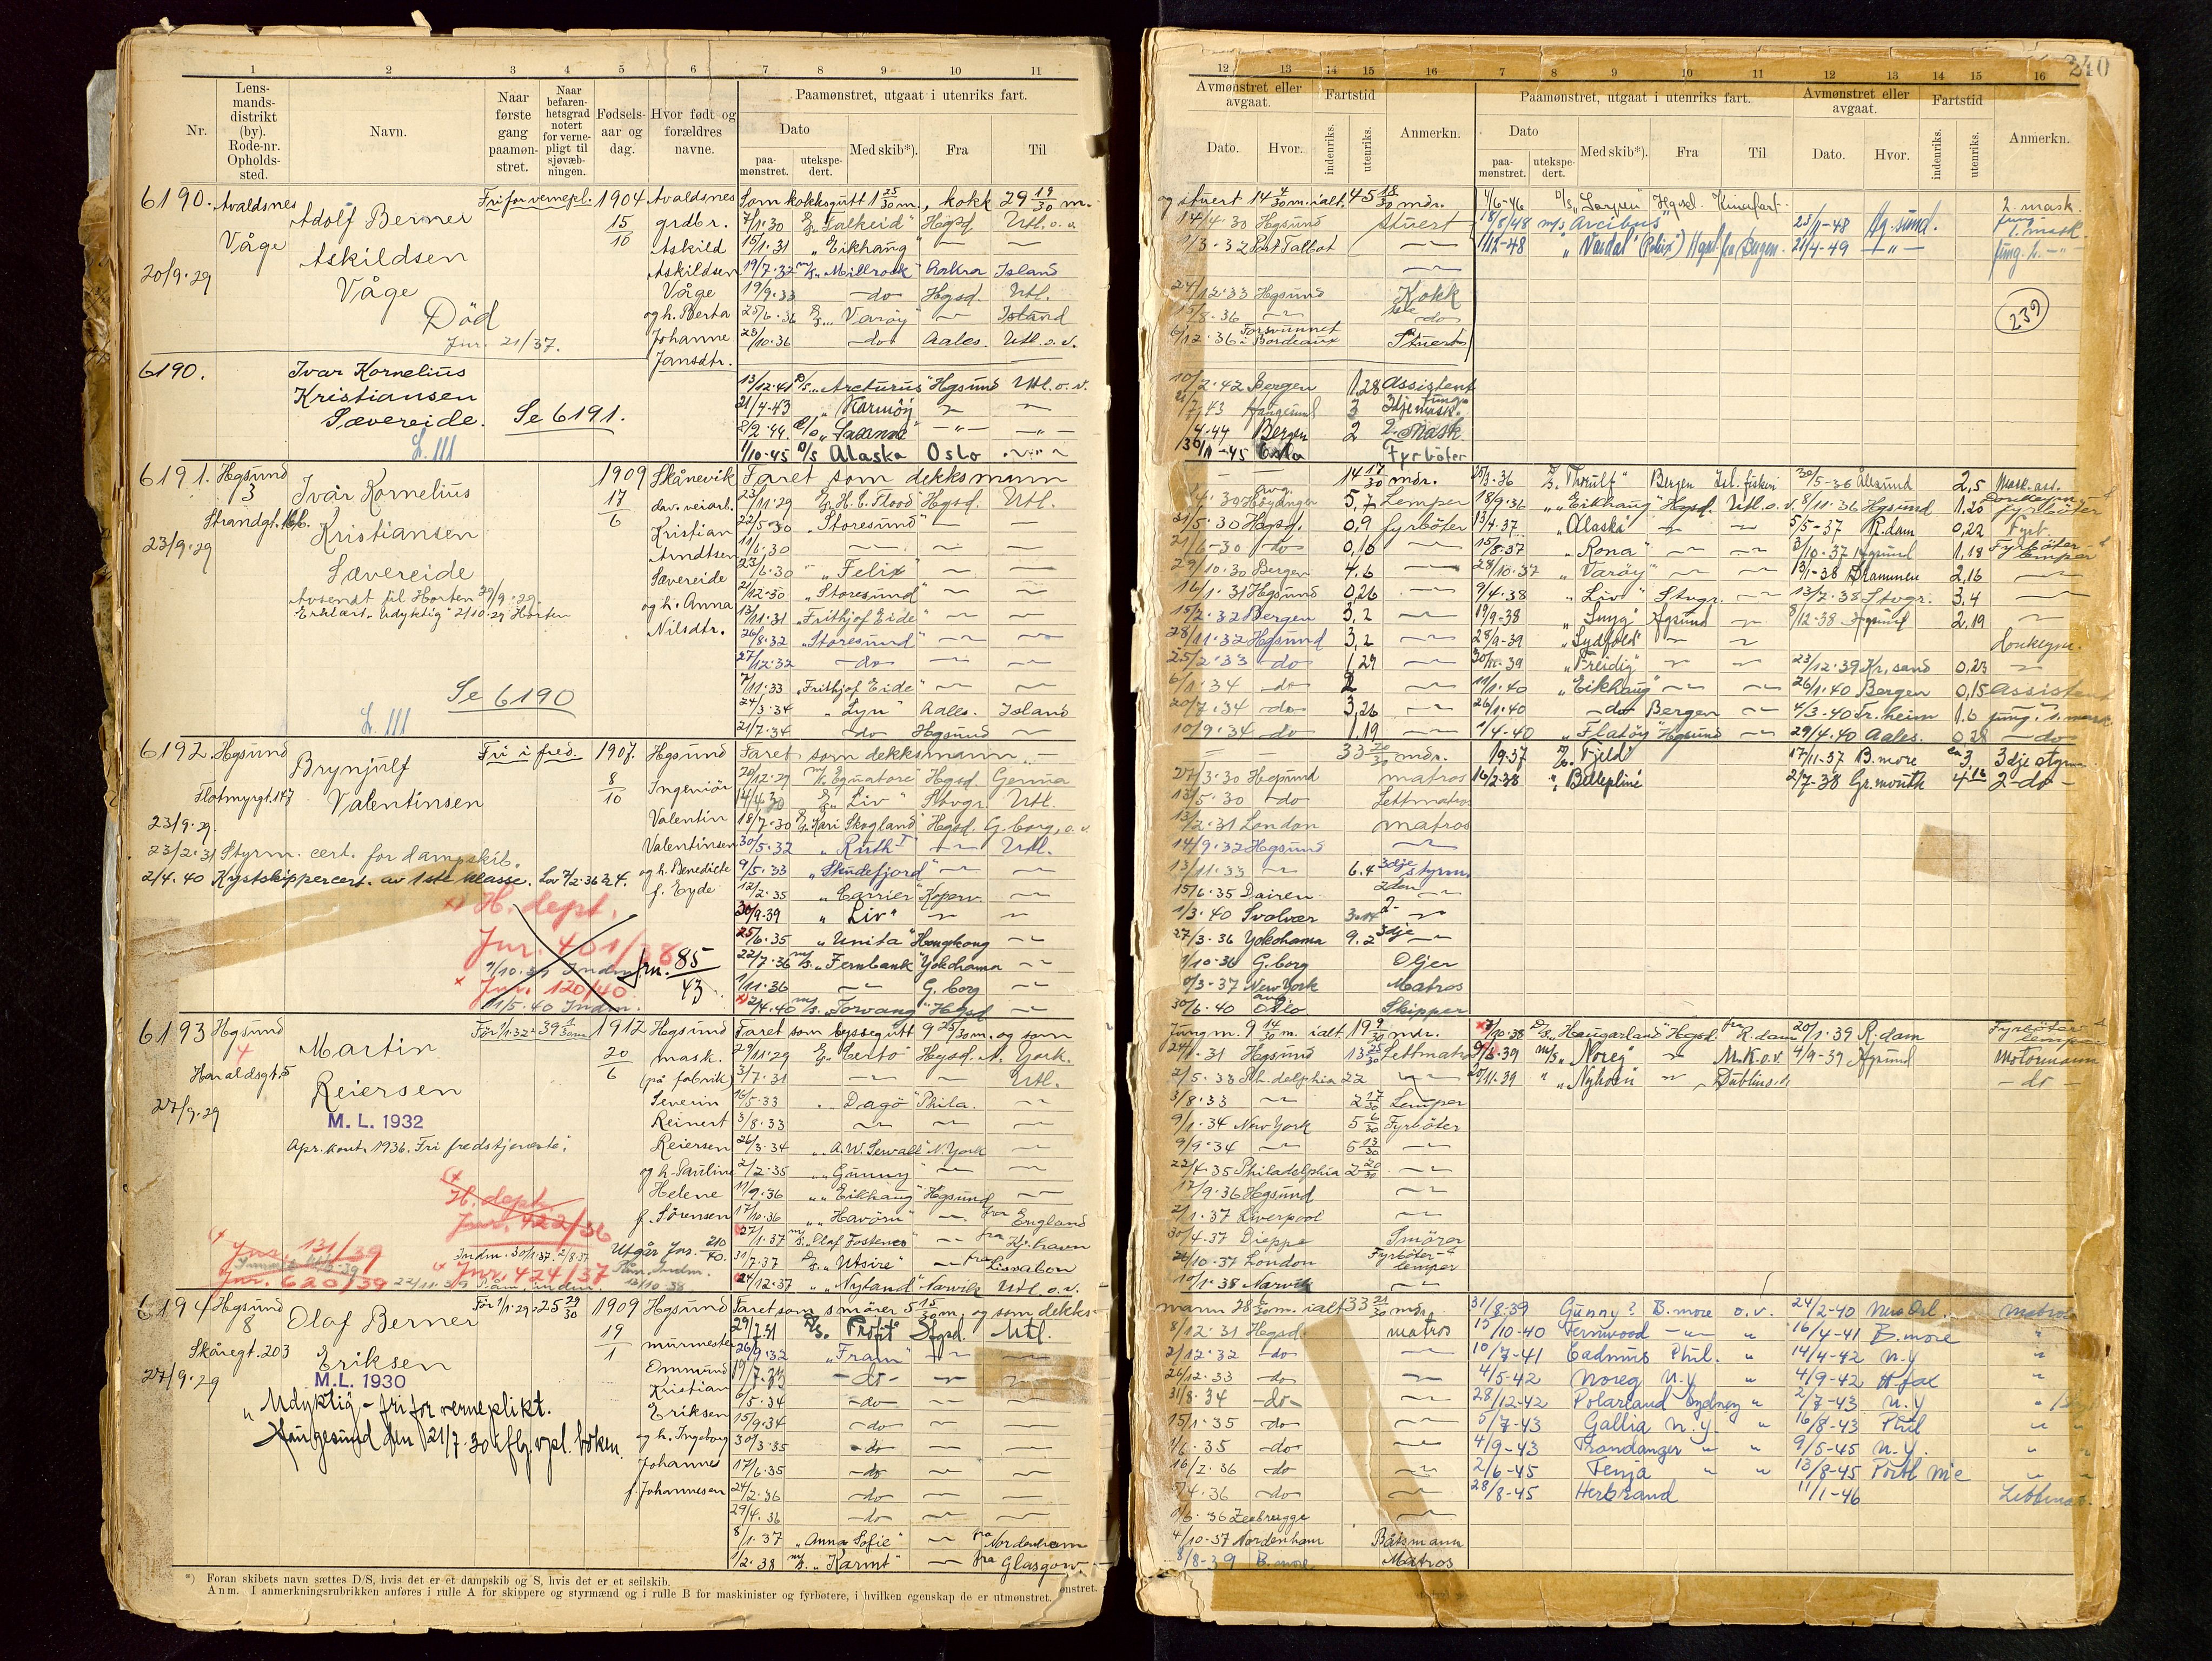 1 2 3 4 5 6 7 8 9 10 11
Nr.
Lens-
mands-
distrikt
(by).
Rode-nr.
Opholds-
sted.
Navn.
Naar
første
gang
paamøn-
stret.
Naar
befaren-
hetsgrad
notert
for verne-
pligt til
sjøvæb-
ningen.
Fødsels-
aar og
dag.
Hvor født og
forældres
navne.
Paamønstret, utgaat i utenriks fart.
Dato
paa-
mønstret.
utekspe-
dert.
Med skib*).
Fra
Til
6190. Avaldsnes
Våge
20/9-29
Adolf Berner
Askildsen
Våge
Død
Jnr. 21/37.
Fri for vernepl.
1904
15/10
Avaldsnes
grdbr.
Askild
Askildsen
Våge
og h. Berta
Johanne
Jansdtr.
Som kokksgutt 1 25/30 m., kokk 29 19/30 m.
7/1.30 "Falkeid" Hgsd. Utl. o. v.
15/1.31 "Eikhaug"
19/7.32 M/S "Millrock" Island
19/9.33 -do- Hgsd. Utl.
25/6.36 "Varøy" Island
-do- Aales. Utl. o. v.
6190.
Ivar Kornelius
Kristiansen
Sævereide. Se 6191.
L. III
13/12.41 D/S "Arcturus" Hgsund Utl. o. v.
21/4-43 "Karmøy"
8/2.44
1/10-45 D/S Alaska Oslo
6191. Hgsund
3
Strandgt.
23/9.29
Ivar Kornelius
Kristiansen
Sævereide
Avsendt til Horten
Erklært "udyktig" 2/10.29 Horten
Se 6190
L. III
1909
17/6
Skånevik
dav. veiarb.
Kristian
Arndtsen
Sævereide
og h. Anna
Nilsdtr.
Faret som dekksmann
23/11.29 "H. C. Flood" Hgsd. Utl.
22/5.30 "Storesund"
11/6.30
23/6.30 "Felix"
21/12.30 "Storesund"
13/11.31 "Frithjof Eide"
26/8.32 "Storesund"
27/12.32 -do-
7/11.33 "Frithjof Eide"
24/3.34 "Lyn" Aales. Island
21/7.34 do Hgsund
6192. Hgsund
Flotmyrgt. 147
23/9.29.
Brynjulf
Valentinsen
Fri i fred.
1907.
8/10
Hgsund
Ingeniør
Valentin
Valentinsen
og h. Benedicte
f. Eyde
23/2.31 Styrm. cert. for dampskib.
2/4.40 Kystskippercert. av 1ste klasse.
H. dept.
Jnr. 401/38
Jnr. 120/40
11/5-40 Indm.
Jrn. 85/43
Faret som dekksmann
20/12.29 "Equatore" Hgsd. Genua
14/4.30 "Liv" Stvgr. Utl.
18/7.30 "Kari Skogland" Hgsd. G.borg, o. v.
30/5.32 "Ruth I" Utl.
9/5.33 "Skudefjord"
12/2.35 "Carrier" Koperv.
30/9.39 "Liv"
25/6.35 "Unita" Hongkong
22/7.36 M/S "Fernbank" Yokohama
1/11.36 G. borg
2/4.40 M/S "Torvang" Hgsd
6193 Hgsund
4
Haraldsgt. 5
27/9.29
Martin
Reiersen
M. L. 1932
Apr. kont. 1936. Fri fredstjeneste.
1912
20/6
Hgsund
mask.
(på fabrik)
Severin
Reinert
Reiersen
og h. Pauline
Helene
f. Sørensen
H. dept.
Jnr. 422/36
Jnr. 131/39
Jnr. 620/39
Jnr. 424/37
Utgår Jnr. 210/40.
Faret som byssegutt 9 25/30 m. og som
29/11.29 "Certo" Hgsd. N. York.
3/7.31 Utl.
16/5.33 "Dagø" Phila.
3/8.33
26/3.34 "A. W. Sewall" N. York
2/2.35 "Gunny"
11/9.36 "Eikhaug" Hgsund
17/10.36 "Havørn" fra England
27/1.37 "Olaf Fostenes" fra Kj. havn
31/7.37 "Utsire" fra Lissabon
24/12.37 "Nyland" Narvik Utl. o. v.
6194 Hgsund
8
Skåregt. 203
27/9.29
Olaf Berner
Eriksen
M.L. 1930
"Udyktig - fri for verneplikt.
Haugesund den 21/7.30 iflg. vpl. boken.
Før 1/1.29 = 25 29/30
1909
19/1
Hgsund
murmester
Ommund
Kristian
Eriksen
og h. Ingeborg
Johannes
f. Johannesen
Faret som smører 5 15/30 m. og som dekks-
29/7.31 D/S. "Profit" Hgsd. Utl.
26/9.32 "Fram"
-do-
6/5.34 -do-
15/9.34 -do-
30/3.35 -do-
17/6.35 -do-
24/2.36 -do-
29/4.36 -do-
8/1.37 "Anna Sofie" fra Nordenham
1/2.38 M/S. "Karmt" fra Glasgow
*) Foran skibets navn sættes D/S, hvis det er et dampskib og S, hvis det er et seilskib.
Anm. I anmerkningsrubrikken anføres i rulle A for skippere og styrmænd og i rulle B for maskinister og fyrbøtere, i hvilken egenskap de er utmønstret.
ønstret.
240
12 13 14 15 16 7 8 9 10 11 12 13 14 15 16
Avmønstret eller
avgaat.
Dato. Hvor.
Fartstid
indenriks.
utenriks.
Anmerkn.
Paamønstret, utgaat i utenriks fart.
Dato
paa-
mønstret.
utekspe-
dert.
Med skib*).
Fra
Til
Avmønstret eller
avgaat.
Dato. Hvor.
Fartstid
indenriks.
utenriks.
Anmerkn.
og stuert 14 4/30 m. ialt 45 18/30 mdr.
14/4.30 Hgsund stuert
1/3.32 Port Talbot
24/12.33 Hgsund Kokk
15/8.36 do
6/12.36 Forsvunnet i Bordeaux Stuert
4/6-46 D/S Hgsd. Kinafart 2. mask.
18/8/48 M/S "Arcibus" 23/11-48 Hg.sund. fung. 1. mask
1/12-48 21/4-49
239
10/2.42 Bergen 1,28 Assistent
7.43 Haugesund 3 fung. 3dje mask.
4.44 Bergen 2 2. Mask
30/11-45 Oslo Fyrbøter
14 17/30 mdr.
39 Høyanger 5,7 Lemper
31/5.30 Hgsd. 0,9 fyrbøter
21/6-30 do 0,10
29/10.30 Bergen 4.6
16/1.31 Hgsund 0,26
15/2.32 Bergen 3,2
28/11.32 Hgsund 3,2
25/2.33 do 1,29
6/1.34 do 2
20/7.34 do 3,26
10/9.34 do 1,19
15/3.36 Bergen Isl. fiskeri 30/5-36 Ålesund 2,5 Mask. ass.
18/9.36 "Eikhaug" Hgsd. Utl. o. v. 8/11.36 Hgsund 1,20 Donkeym. & fyrbøter
13/4.37 "Alaska" 5/5-37 R.dam 0,22 Fyrb.
15/8.37 "Rona" 3/10.37 Hgsund 1,18 Fyrbøter & lemper
28/10.37 "Varøy" 13/1-38 Drammen 2,16
9/4.38 "Liv" Stvgr. 13/7.38 Stvgr. 3,4
19/9-38 "Snyg" Hgsund 8/12-38 Hgsund 2,19
28/9-39 "Sydfold" Donkeym.
"Freidig" 23/12.39 Kr. sand 0,23
11/1.40 "Eikhaug" 26/1.40 Bergen 0,15 Assistent
26/1.40 -do- Bergen 4/3.40 Tr. heim 1.6 fung. 1. mask.
1/4-40 "Flatøy" Hgsund 29/4.40 Aales. 0,28 -do-
33 20/30 mdr.
27/3.30 Hgsund matros
13/5.30 do Lettmatros
13/2.31 London matros
14/9.32 Hgsund
13/11.33 6.4 3dje styrm.
15/6.35 Dairen 2den
1/3.40 Svolvær 2.
27/3-36 Yokohama 9.2 3dje
1/10-36 G.borg Oljer
New York Matros
30/6.40 Oslo Skipper
19.37 "Fjeld" 17/11-37 B.more ca 3 3dje styrm.
16/2-38 2/7-38 Gr.mouth 2 -do-
Jungm. 9 14/30 m. ialt 19 9/30 mdr.
24/1.31 Hgsund 13 25/30 Lettmatros
2/5.33 Ph. delphia 22
3/8.33 2 17/30 Lemper
9/1.34 New York 5 6/30 Fyrbøter
9/9.34 5 13/30
22/4.35 Philadelphia 2 20/30
17/9.36 Hgsund
2/1.37 Liverpool
30/4.37 Dieppe Smører
26/10.37 London Fyrbøter & lemper
10/1.38 Narvik
D/S "Haugarland" Hgsd fra R.dam 20/1.39 R.dam Fyrbøter & lemper
M/S "Noreg" 4/9-39 Hgsund Motormann
"Nyhorn" Dublin - do -
mann 28 m. ialt 33 21/30 mdr.
8/12.31 Hgsd. matros
2/12.32 do
26/12.33 do
31/8.34 -do-
15/1.35 do
1/6.35 do
16/2.36 do
4.36 do
6.36 Zeebrugge
4/10-37 Nordenham Båtsmann
8/8-39 B.more Matros
31/8-39 Gunny? B.more o. v. 24/2-40 New Orl. Matros
15/10-40 Fernwood 16/4-41 B.more "
10/7-41 Cadmus Phil. " 14/4-42 N.Y "
4/5-42 Noreg N.Y " 4/9-42 H.fax "
28/12-42 Polarland Sydney " 2/7-43 N.Y "
5/7-43 Gallia N.Y. " 16/8-43 Phil "
4/9-43 Trondanger " " 9/5-45 N.Y. "
2/6-45 Fenja " " 13/8-45 "
28/8-45 Herbrand 11/1-46